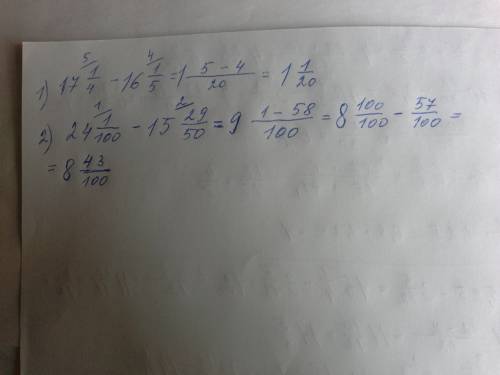 1) 17 5/ 1/4 - 16 4/ 1/5 = 1 (5-4)/20 = 1 1/20
2) 24 1/ 1/100 - 15 2/ 29/50 = 9 (1-58)/100 = 8 100/100 - 57/100 =
= 8 43/100